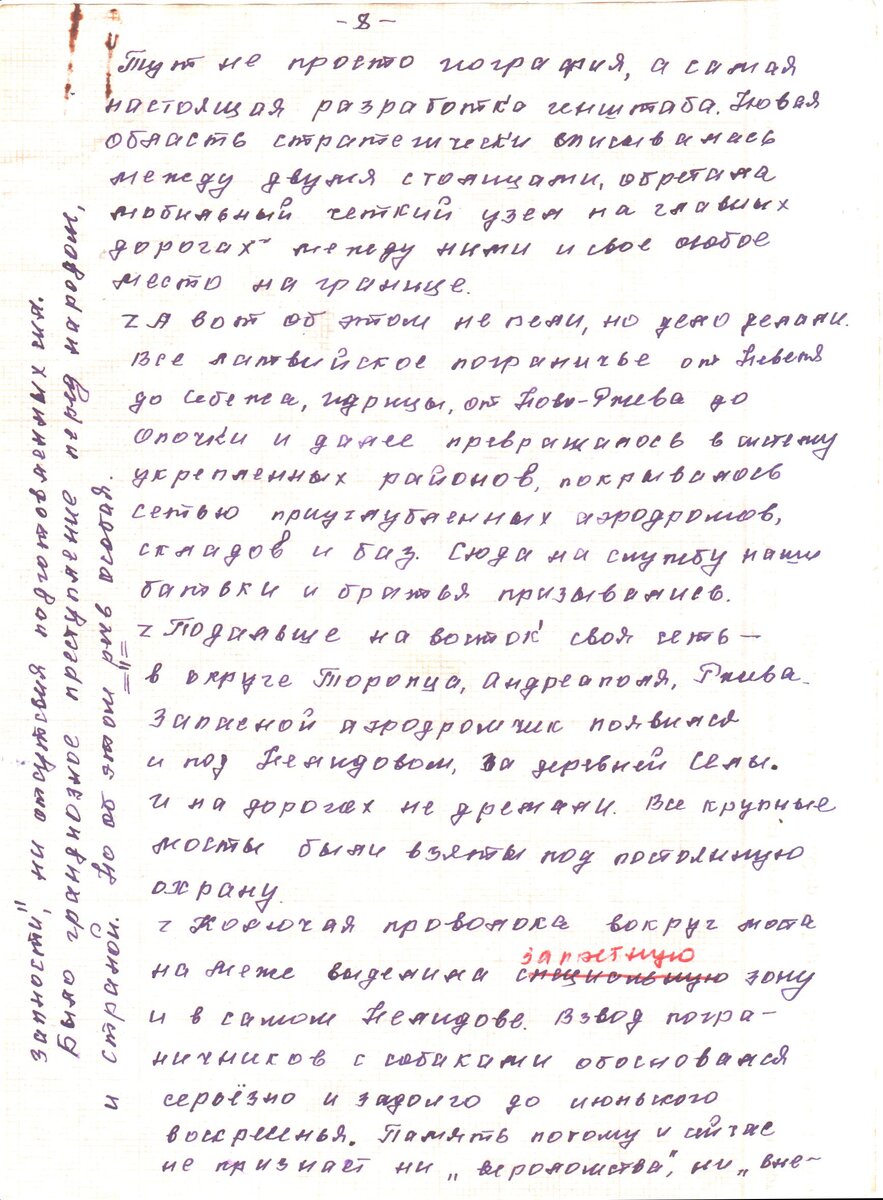 - 8 -
Тут не просто география, а самая
настоящая разработка генштаба. Новая
область стратегически вписывалась
между двумя столицами, обретала
мобильный четкий узел на главных
дорогах между ними и свое особое
место на границе.
Z А вот об этом не пели, но дело делали.
Все латвийское пограничье от Невеля
до Себежа, Идрицы, от Ново-Ржева до
Опочки и далее превращалось в систему
укрепленных районов, покрывалось
сетью приуглубленных аэродромов,
складов и баз. Сюда на службу наши
батьки и братья призывались.
Z Подальше на восток своя сеть —
в округе Торопца, Андреаполя, Ржева.
Запасной аэродромчик появился
и под Нелидовом, за деревней Селы.
И на дорогах не дремали. Все крупные
мосты были взяты под постоянную
охрану.
Z Колючая проволока вокруг моста
запретную
на Меже выделила специальную зону
и в самом Нелидове. Взвод погра-
ничников с собаками обосновался
серьёзно и задолго до июньского
воскресенья. Память потому и сейчас
не признает ни „вероломства", ни „вне-
запности", ни отсутствия подготовленных сил.
Было грандиозное преступление перед народом,
и страной. Но об этом речь особая.
="=